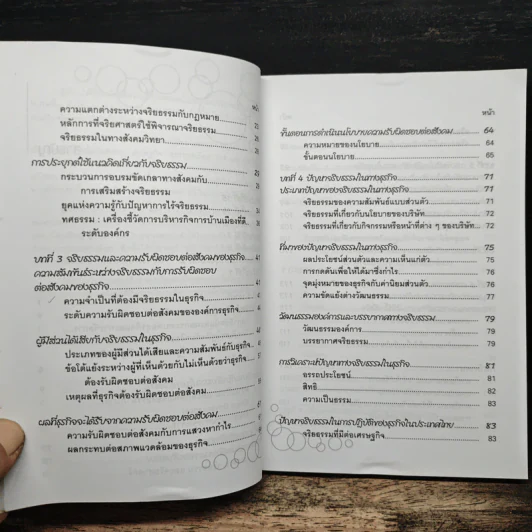 ความแตกต่างระหว่างจริยธรรมกับกฎหมาย
หลักการที่จริยศาสตร์ใช้พิจารณาจริยธรรม
จริยธรรมในทางสังคมวิทยา
การประยุกต์ใช้แนวคิดเกี่ยวกับจริยธรรม
กระบวนการอบรมขัดเกลาทางสังคมกับ
การเสริมสร้างจริยธรรม
ยุคแห่งความรู้กับปัญหาการไร้จริยธรรม
ทศธรรม : เครื่องชี้วัดการบริหารกิจการบ้านเมืองที่ดี
ระดับองค์กร
บทที่ 3 จริยธรรมและความรับผิดชอบต่อสังคมของธุรกิจ
ความสัมพันธ์ระหว่างจริยธรรมกับการรับผิดชอบ
ต่อสังคมของธุรกิจ
ความจำเป็นที่ต้องมีจริยธรรมในธุรกิจ
ระดับความรับผิดชอบต่อสังคมขององค์การธุรกิจ
ผู้มีส่วนได้เสียกับจริยธรรมในธุรกิจ
ประเภทของผู้มีส่วนได้เสียและความสัมพันธ์กับธุรกิจ
ข้อโต้แย้งระหว่างผู้ที่เห็นด้วยกับไม่เห็นด้วยว่าธุรกิจ
ต้องรับผิดชอบต่อสังคม
เหตุผลที่ธุรกิจต้องรับผิดชอบต่อสังคม
ผลที่ธุรกิจจะได้รับจากความรับผิดชอบต่อสังคม
ความรับผิดชอบต่อสังคมกับการแสวงหากำไร
ผลกระทบต่อสภาพแวดล้อมของธุรกิจ
หน้า
ขั้นตอนการดำเนินนโยบายความรับผิดชอบต่อสังคม 64
ความหมายของนโยบาย 64
ขั้นตอนนโยบาย 65
บทที่ 4 ปัญหาจริยธรรมในทางธุรกิจ 71
ประเภทปัญหาของจริยธรรมในทางธุรกิจ 71
จริยธรรมของความสัมพันธ์แบบส่วนตัว 72
จริยธรรมที่เกี่ยวกับนโยบายของบริษัท 72
จริยธรรมที่เกี่ยวกับกิจกรรมหรือหน้าที่ต่าง ๆ ของบริษัท 72
ที่มาของปัญหาจริยธรรมในทางธุรกิจ 75
ผลประโยชน์ส่วนตัวและความเห็นแก่ตัว 75
การกดดันเพื่อให้ได้มาซึ่งกำไร 76
จุดมุ่งหมายของธุรกิจกับค่านิยมส่วนตัว 76
ความขัดแย้งต่างวัฒนธรรม 77
วัฒนธรรมองค์การและบรรยากาศทางจริยธรรม 79
วัฒนธรรมองค์การ 79
บรรยากาศจริยธรรม 79
การวิเคราะห์ปัญหาทางจริยธรรมในธุรกิจ 81
อรรถประโยชน์ 81
สิทธิ 82
ความเป็นธรรม 83
ปัญหาจริยธรรมในการปฏิบัติของธุรกิจในประเทศไทย 83
จริยธรรมที่มีต่อเศรษฐกิจ 83